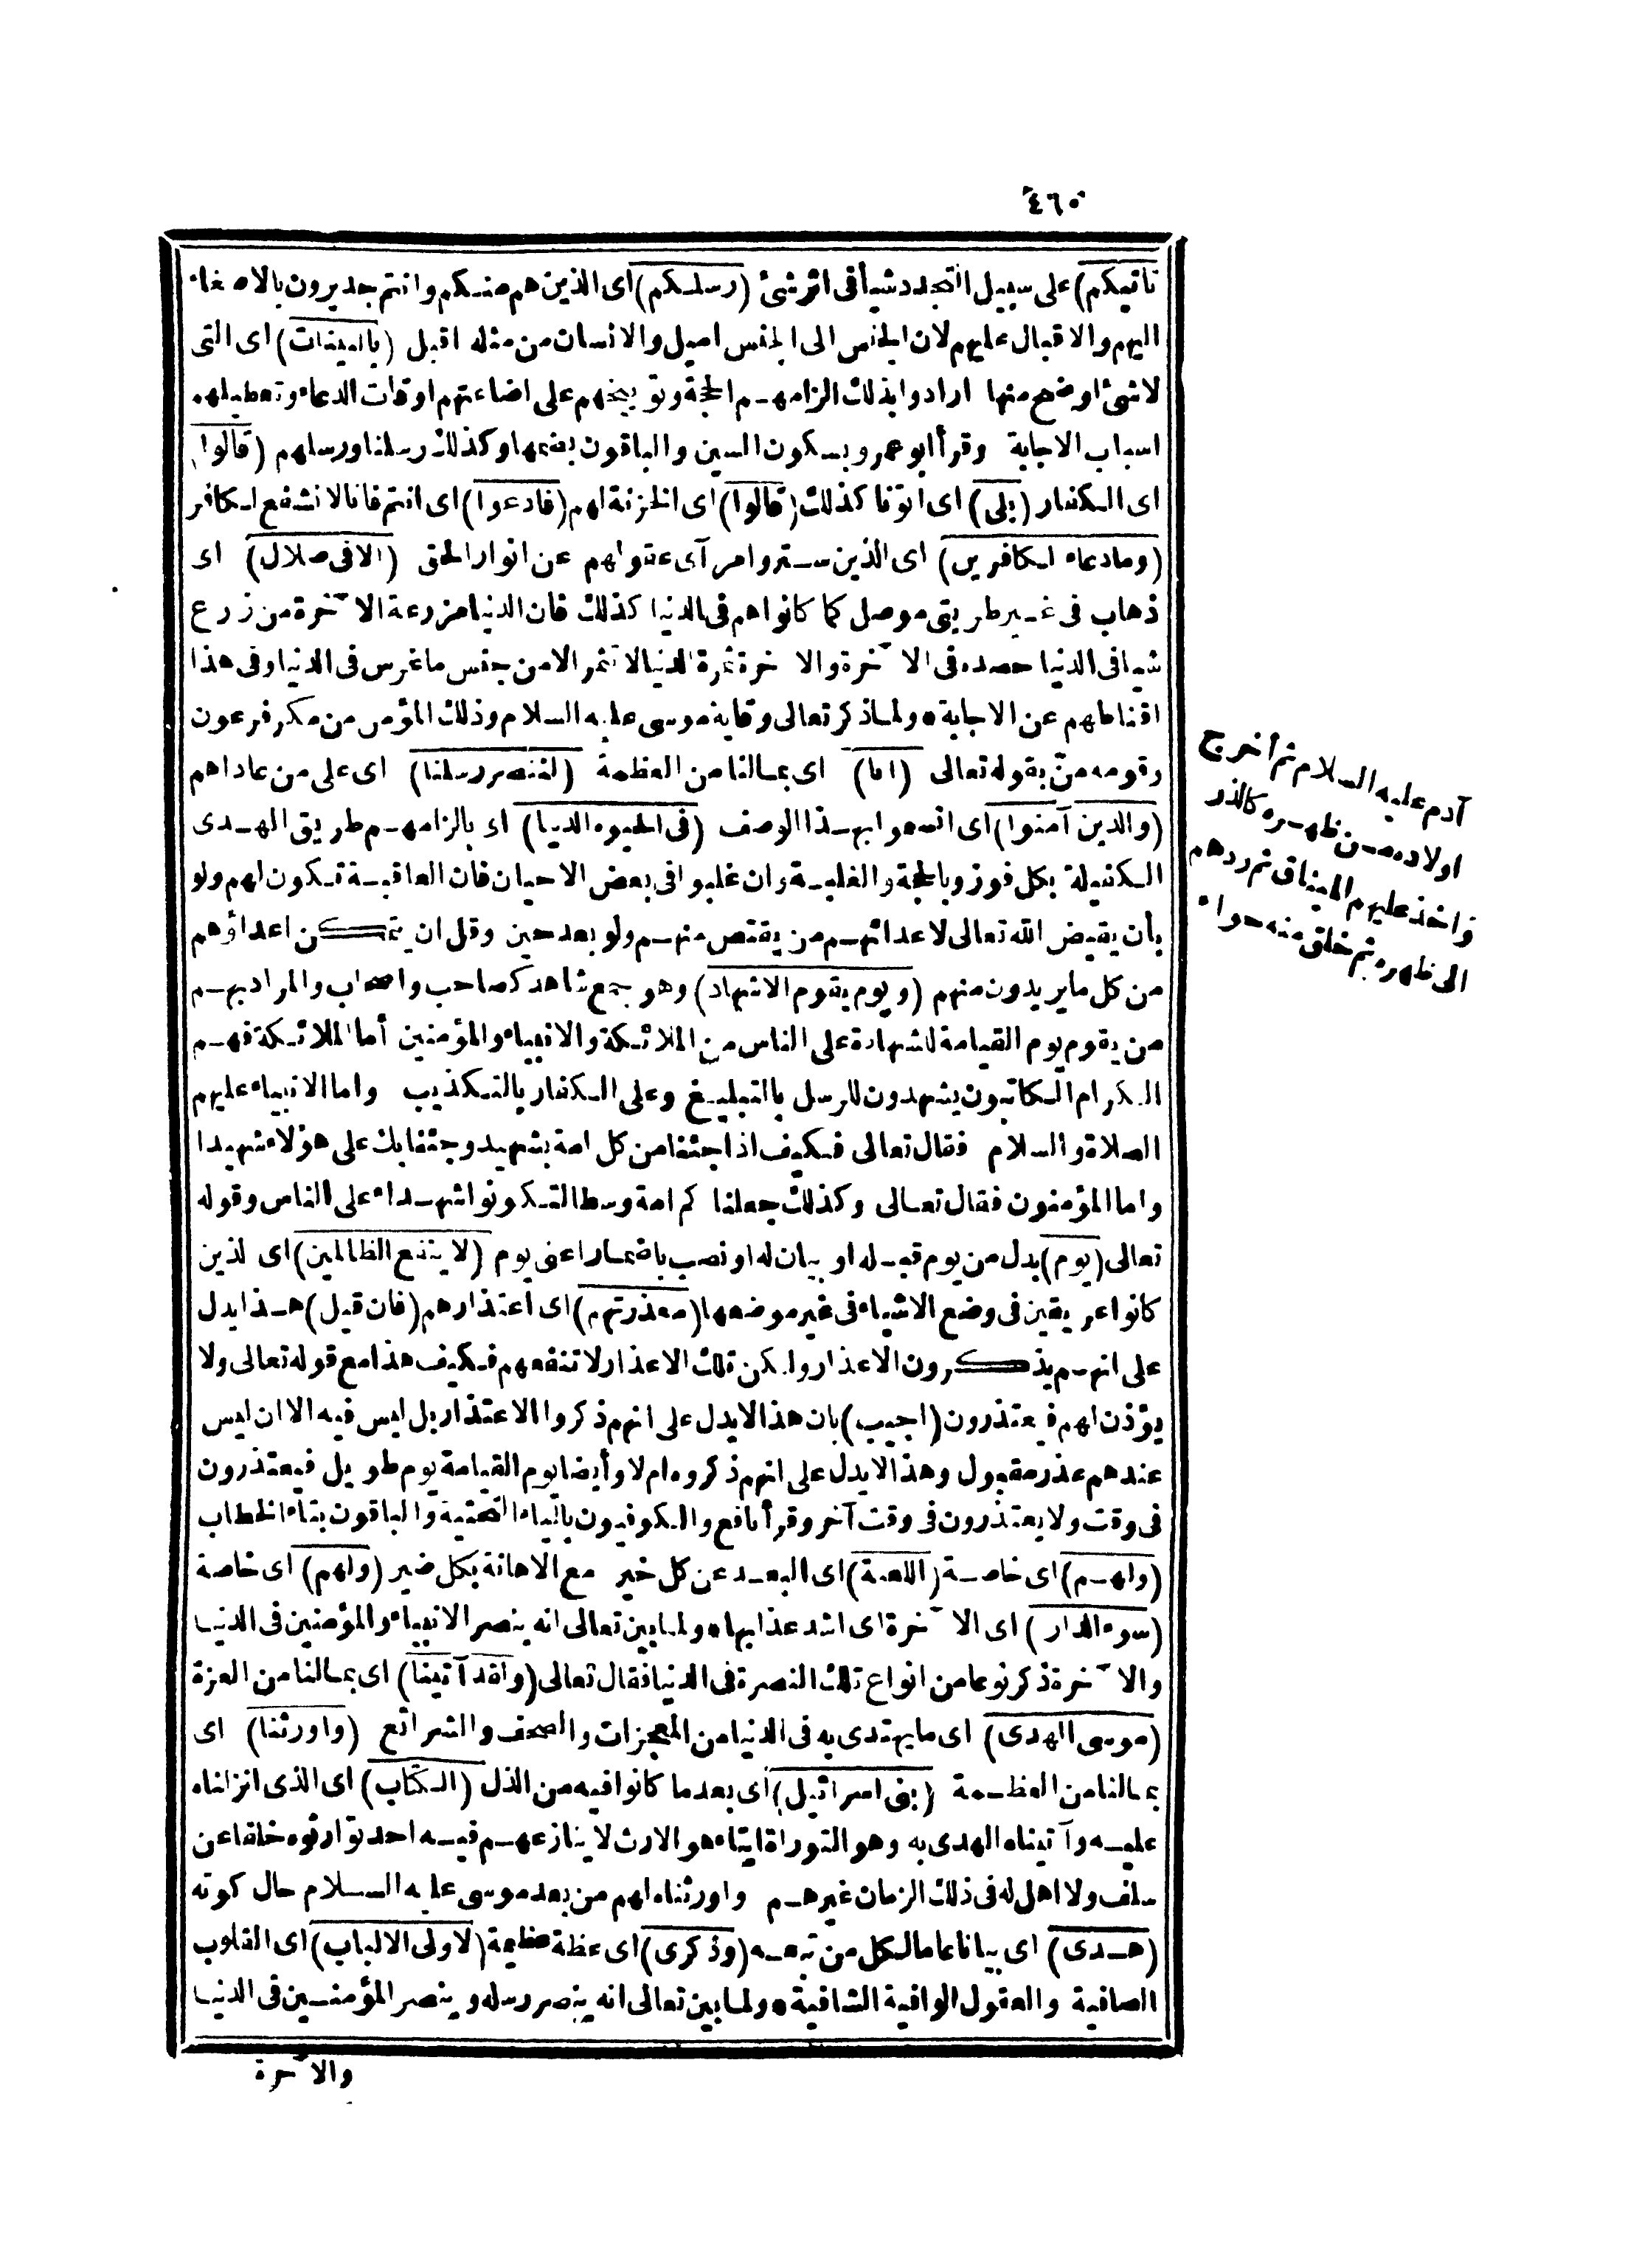 ٤٦٠
تأتيكم) على سبيل التجدد شيأ فى اثر شئ (رسلكم) اى الذين هم منكم وانتم جديرون بالاصغاء
اليهم والاقبال عليهم لان الجنس الى الجنس اميل والانسان من مثله اقبل (بالبينات) اى التى
لاشئ اوضح منها ارادوا بذلك الزامهم الحجة وتوبيخهم على اضاعتهم اوقات الدعاء وتعطيلهم
اسباب الاجابة وقرأ ابو عمرو بسكون السين والباقون بضمها وكذلك رسلنا ورسلهم (قالوا)
اى الكفار (بلى) اى اتونا كذلك (قالوا) اى الخزنة لهم (فادعوا) اى انتم فانا لا نشفع لكافر
(وما دعاء الكافرين) اى الذين ستروا مرآى عقولهم عن انوار الحق (الا فى ضلال) اى
ذهاب فى غير طريق موصل كما كانوا هم فى الدنيا كذلك فان الدنيا مزرعة الآخرة من زرع
شيا فى الدنيا حصده فى الآخرة والآخرة ثمرة الدنيا لا تثمر الا من جنس ما غرس فى الدنيا وفى هذا
اقناطهم عن الاجابة ٥ ولما ذكر تعالى وقاية موسى عليه السلام وذلك المؤمن من مكر فرعون
وقومه منّ بقوله تعالى (انا) اى بمالنا من العظمة (لننصر رسلنا) اى على من عاداهم
(والذين آمنوا) اى اتسموا بهذا الوصف (فى الحيوة الدنيا) اى بالزامهم طريق الهدى
الكفيلة بكل فوز وبالحجة والغلبة وان غلبوا فى بعض الاحيان فان العاقبة تكون لهم ولو
بأن يقيض الله تعالى لاعدائهم من يقتص منهم ولو بعد حين وقل ان يتمكن اعداؤهم
من كل ما يريدون منهم (ويوم يقوم الاشهاد) وهو جمع شاهد كصاحب واصحاب والمراد بهم
من يقوم يوم القيامة للشهادة على الناس من الملائكة والانبياء والمؤمنين أما الملائكة فهم
الكرام الكاتبون يشهدون للرسل بالتبليغ وعلى الكفار بالتكذيب واما الانبياء عليهم
الصلاة والسلام فقال تعالى فكيف اذا جئنا من كل امة بشهيد وجئنا بك على هؤلاء شهيدا
واما المؤمنون فقال تعالى وكذلك جعلناكم امة وسطا لتكونوا شهداء على الناس وقوله
تعالى (يوم) بدل من يوم قبله او بيان له او نصب باضمار اعنى يوم (لا ينفع الظالمين) اى الذين
كانوا عريقين فى وضع الاشياء فى غير موضعها (معذرتهم) اى اعتذارهم (فان قيل) هذا يدل
على انهم يذكرون الاعذار ولكن تلك الاعذار لا تنفعهم فكيف هذا مع قوله تعالى ولا
يؤذن لهم فيعتذرون (اجيب) بان هذا لا يدل على انهم ذكروا الاعتذار بل ليس فيه الا ان ليس
عندهم عذر مقبول وهذا لا يدل على انهم ذكروه ام لا وأيضا يوم القيامة يوم طويل فيعتذرون
فى وقت ولا يعتذرون فى وقت آخر وقرأ نافع والكوفيون بالياء التحتية والباقون بتاء الخطاب
(ولهم) اى خاصة (اللعنة) اى البعد عن كل خير مع الاهانة بكل ضير (ولهم) اى خاصة
(سوء الدار) اى الآخرة اى اشد عذابها ٥ ولما بين تعالى انه ينصر الانبياء والمؤمنين فى الدنيا
والآخرة ذكر نوعا من انواع تلك النصرة فى الدنيا فقال تعالى (ولقد آتينا) اى بمالنا من العزة
(موسى الهدى) اى ما يهتدى به فى الدنيا من المعجزات والصحف والشرائع (واورثنا) اى
بمالنا من العظمة (بنى اسرائيل) اى بعد ما كانوا فيه من الذل (الكتاب) اى الذى انزلناه
عليه وآتيناه الهدى به وهو التوراة ايتاء هو الارث لا ينازعهم فيه احد توارثوه خلفا عن
سلف ولا اهل له فى ذلك الزمان غيرهم واورثناه لهم من بعد موسى عليه السلام حال كونه
(هدى) اى بيانا عاما لكل من تبعه (وذكرى) اى عظة عظيمة (لاولى الالباب) اى القلوب
الصافية والعقول الوافية الشافية ٥ ولما بين تعالى انه ينصر رسله وينصر المؤمنين فى الدنيا
والآخرة
آدم عليه السلام ثم أخرج
اولاده من ظهره كالذر
واخذ عليهم الميثاق ثم ردهم
الى ظهره ثم خلق منه حواء